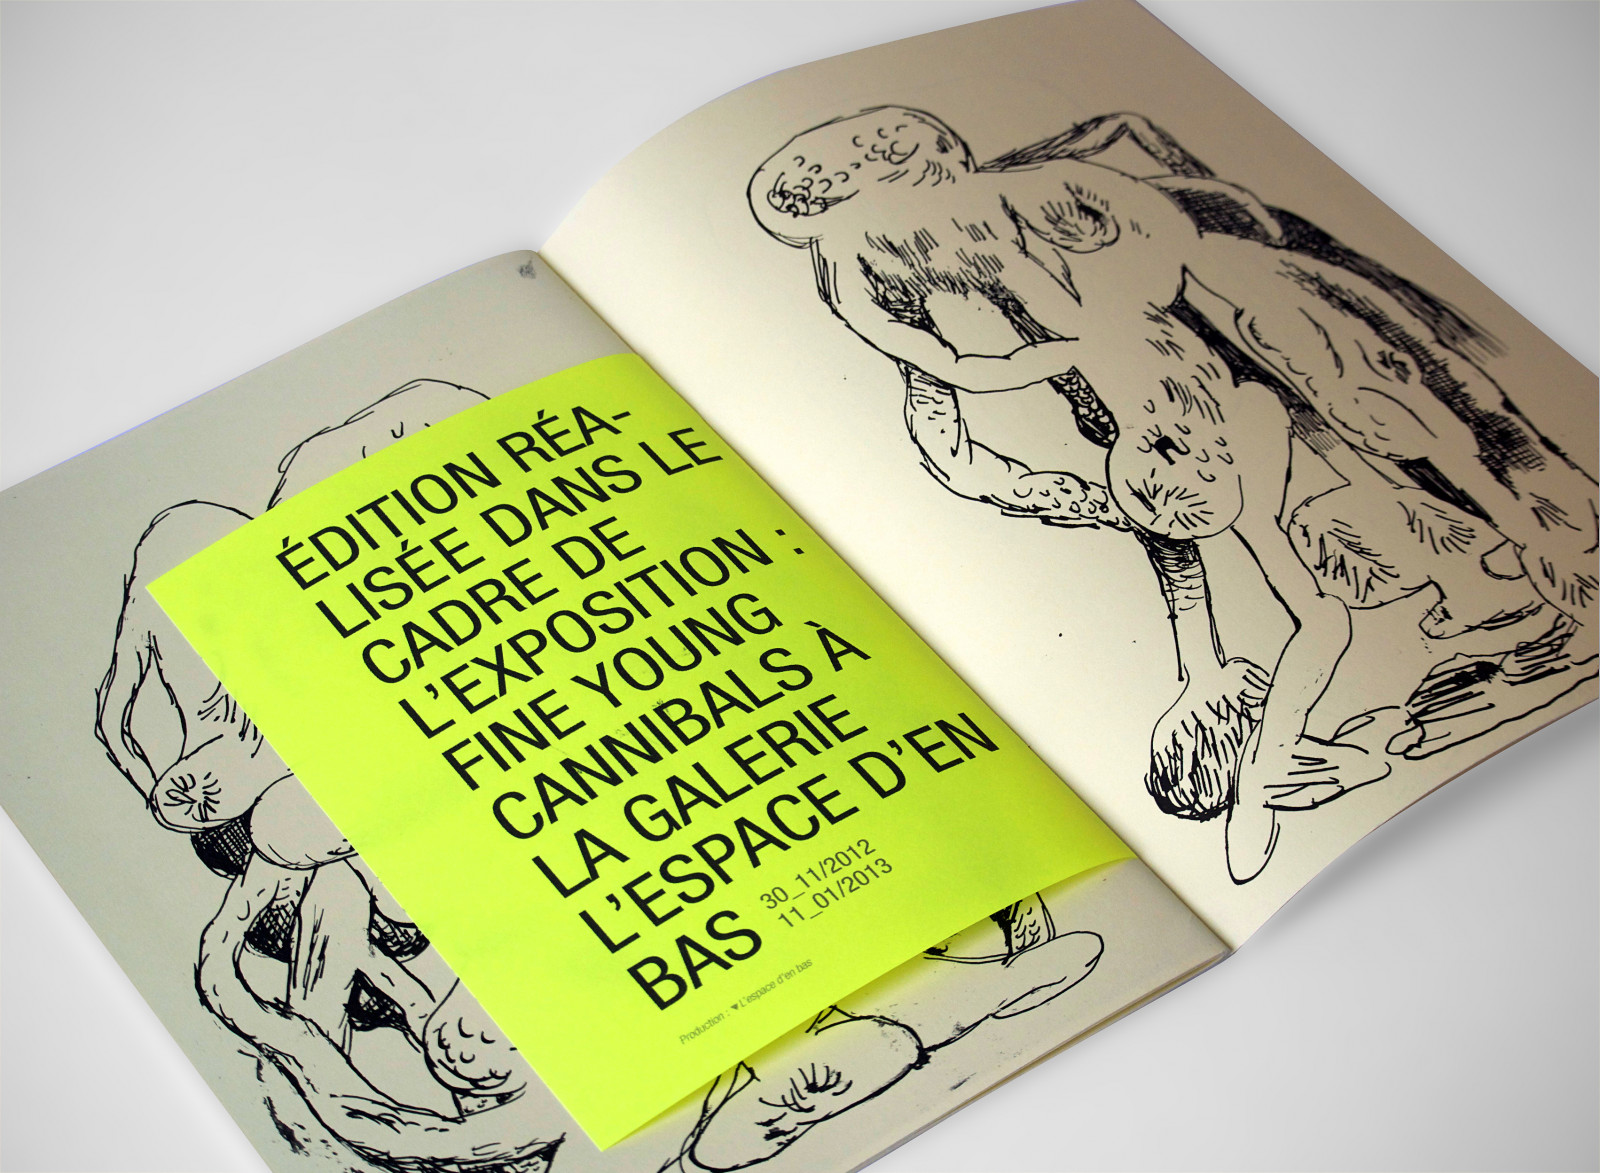 ÉDITION RÉA-
LISÉE DANS LE
CADRE DE
L'EXPOSITION :
FINE YOUNG
CANNIBALS À
LA GALERIE
L'ESPACE D'EN
BAS
30_11/2012
11_01/2013
Production : ♥ L'espace d'en bas